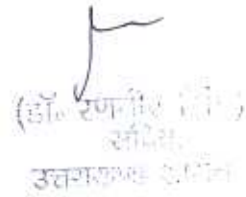 (डॉ. रणवीर
सचिव
उत्तराखण्ड शासन